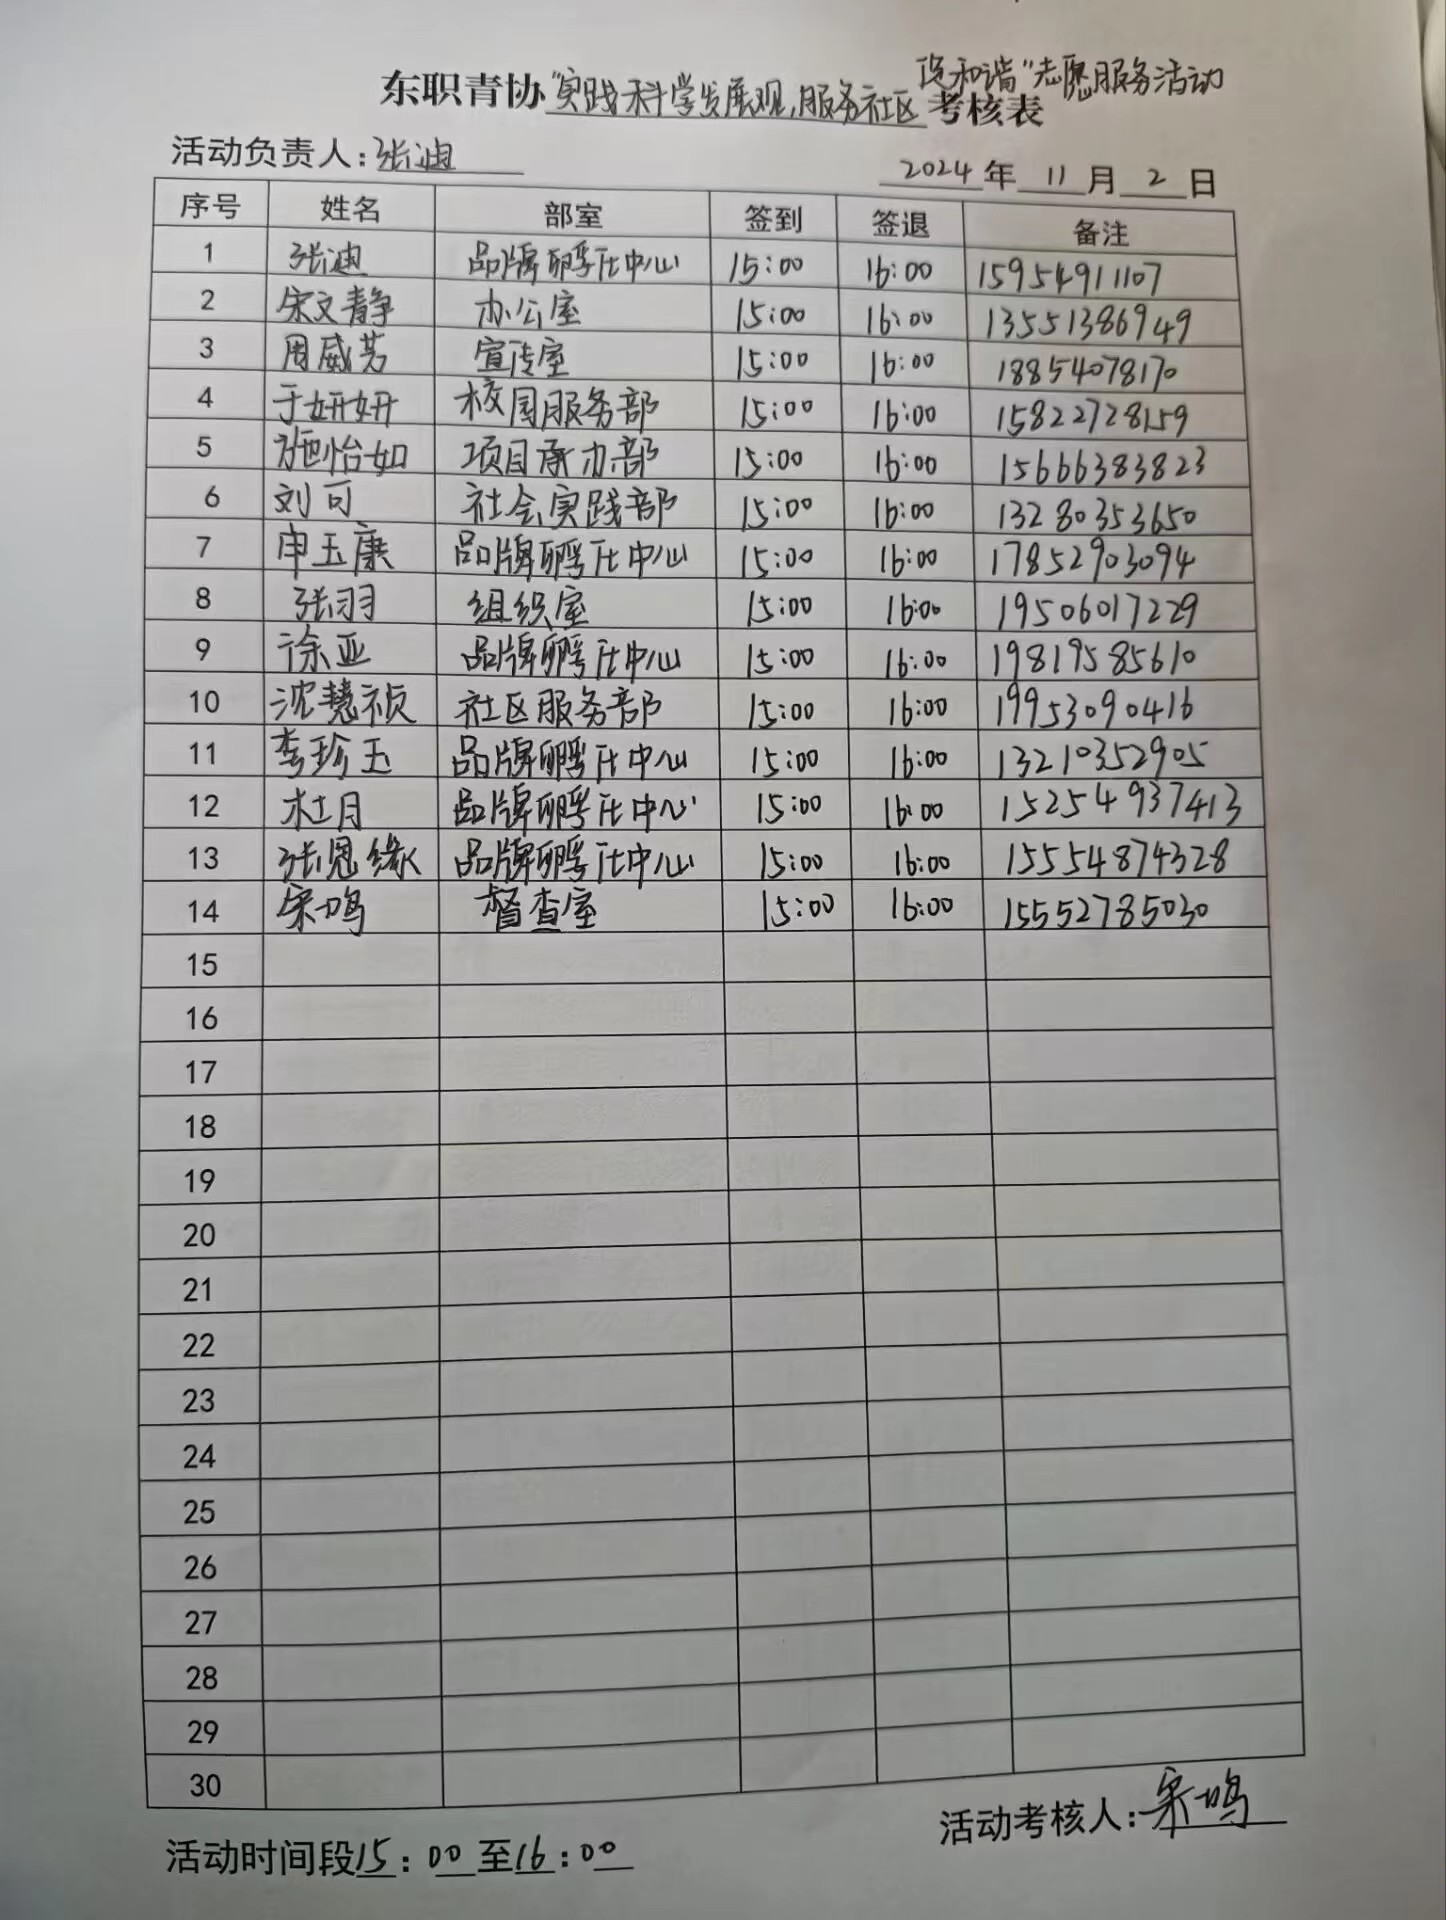 东职青协“实践科学发展观,服务社区促和谐”志愿服务活动考核表
活动负责人:张迪
2024年11月2日
序号 姓名 部室 签到 签退 备注
1 张迪 品牌孵化中心 15:00 16:00 15954911107
2 宋文静 办公室 15:00 16:00 13551386949
3 周威芳 宣传室 15:00 16:00 18854078170
4 于妍妍 校园服务部 15:00 16:00 15822728159
5 施怡如 项目承办部 15:00 16:00 15666383823
6 刘可 社会实践部 15:00 16:00 13280353650
7 申玉康 品牌孵化中心 15:00 16:00 17852903094
8 张羽 组织室 15:00 16:00 19506017229
9 徐亚 品牌孵化中心 15:00 16:00 19819585610
10 沈慧祯 社区服务部 15:00 16:00 19953090416
11 李珍玉 品牌孵化中心 15:00 16:00 13210352905
12 杜月 品牌孵化中心 15:00 16:00 15254937413
13 张恩缘 品牌孵化中心 15:00 16:00 15554874328
14 宋鸣 督查室 15:00 16:00 15552785030
15
16
17
18
19
20
21
22
23
24
25
26
27
28
29
30
活动考核人:宋鸣
活动时间段15:00至16:00